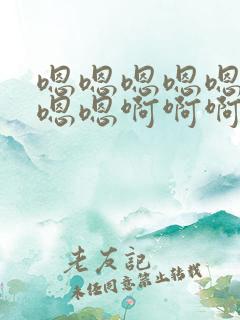 嗯嗯嗯嗯嗯
嗯嗯啊啊啊
老友記
未经同意禁止转载